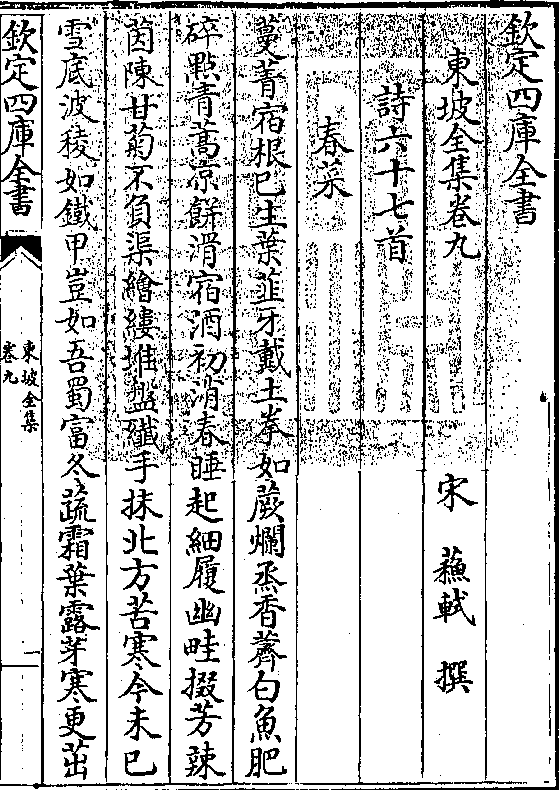 欽定四庫全書
東坡全集卷九
宋 蘇軾 撰
詩六十七首
春菜
蔓菁宿根已生葉韭牙戴土拳如蕨爛烝香薺白魚肥
碎點青蒿凉餅滑宿酒初消春睡起細履幽畦掇芳辣
茵陳甘菊不負渠繪縷堆盤纖手抹北方苦寒今未已
雪底波稜如鐵甲豈如吾蜀富冬蔬霜葉露芽寒更茁
欽定四庫全書
東坡全集
卷九
一